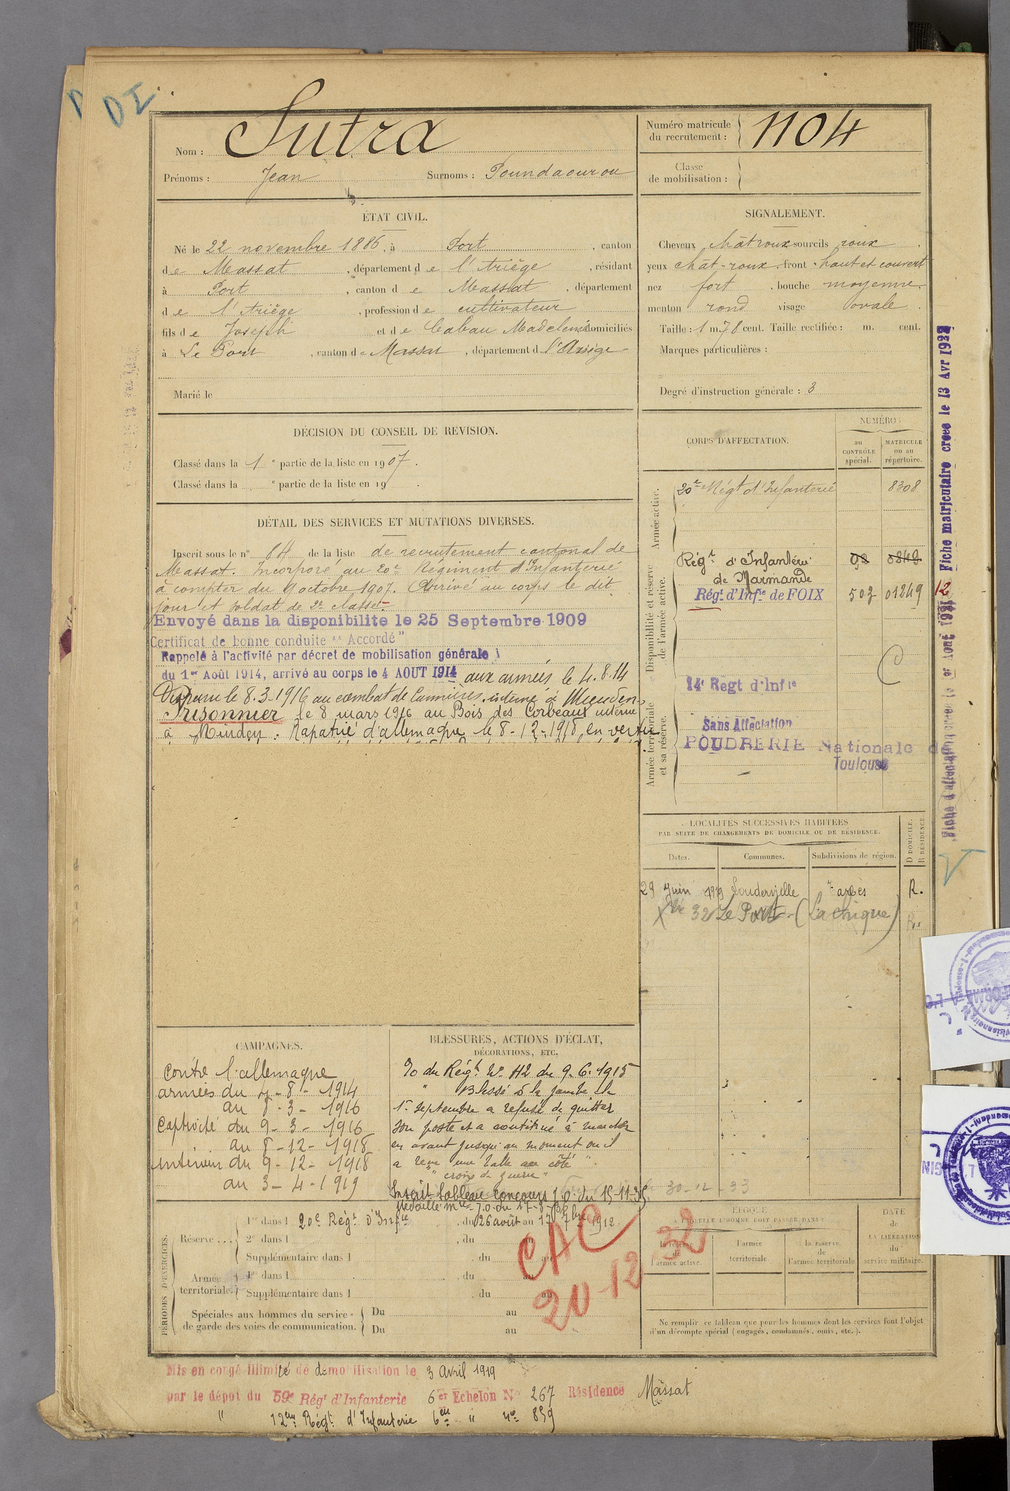 DI
Nom : Sutra
Prénoms : Jean Surnoms : Poundaourou
Numéro matricule
du recrutement : 1104
Classe
de mobilisation :
ÉTAT CIVIL.
Né le 22 novembre 1886, à Port, canton
de Massat, département de l'Ariège, résidant
à Port, canton de Massat, département
de l'Ariège, profession de cultivateur
fils de Joseph et de Cabau Madeleine domiciliés
à Le Port, canton de Massat, département d l'Ariège
Marié le
SIGNALEMENT.
Cheveux chât roux sourcils roux
yeux chât-roux front haut et couvert
nez fort, bouche moyenne
menton rond visage ovale
Taille : 1 m. 78 cent. Taille rectifiée : m. cent.
Marques particulières :
Degré d'instruction générale : 3
DÉCISION DU CONSEIL DE REVISION.
Classé dans la 1e partie de la liste en 1907.
Classé dans la e partie de la liste en 19 .
DÉTAIL DES SERVICES ET MUTATIONS DIVERSES.
Inscrit sous le n° 64 de la liste de recrutement cantonal de
Massat. Incorporé au 20e Régiment d'Infanterie
à compter du 9 octobre 1907. Arrivé au corps le dit
jour et soldat de 2e classe.
Envoyé dans la disponibilité le 25 Septembre 1909
Certificat de bonne conduite "Accordé"
Rappelé à l'activité par décret de mobilisation générale
du 1er Août 1914, arrivé au corps le 4 AOUT 1914 aux armées le 4.8.14
Disparu le 8.3.1916 au combat de Cumières, interné à Munden
Prisonnier le 8 mars 1916 au Bois des Corbeaux interné
à Minden. Rapatrié d'allemagne le 8-12-1918, en vertu
CORPS D'AFFECTATION.
NUMÉRO :
au
CONTRÔLE
spécial.
MATRICULE
ou au
répertoire.
Armée active.
20e Régt d'Infanterie 8308
Disponibilité et réserve
de l'armée active.
Régt d'Infanterie
de Marmande
Régt d'Infie de FOIX 503 01249
14e Regt d'Infie
Armée territoriale
et sa réserve.
Sans Affectation
POUDRERIE Nationale de
Toulouse
LOCALITÉS SUCCESSIVES HABITÉES
PAR SUITE DE CHANGEMENTS DE DOMICILE OU DE RÉSIDENCE.
Dates. Communes. Subdivisions de région. D DOMICILE R RÉSIDENCE
29 Juin 1919 Loudervielle Tarbes R.
32 Le Port
Fiche matriculaire créée le 13 Avr 1932
CAMPAGNES.
Contre l'allemagne
armées du 4-8-1914
au 8-3-1916
Captivité du 9-3-1916
au 8-12-1918
intérieur du 9-12-1918
au 3-4-1919
BLESSURES, ACTIONS D'ÉCLAT,
DÉCORATIONS, ETC.
O du Régt N° 42 du 9.6.1915
" Blessé à la jambe le
1er septembre a refusé de quitter
son poste et a continué à marcher
en avant jusqu'au moment où il
a reçu une balle au côté "
"croix de guerre"
Inscrit tableau concours J.O. du 15-11-35
PÉRIODES D'EXERCICES.
Réserve .... 1re dans l 20e Régt d'Infie, du 26 août au 17 7bre 1912
2e dans l , du au
Supplémentaire dans l , du
Armée
territoriale
1re dans l , du au
Supplémentaire dans l , du au
Spéciales aux hommes du service
de garde des voies de communication. Du au
Du au
CAC
20 12 32
ÉPOQUE
À LAQUELLE L'HOMME DOIT PASSER DANS :
l'armée active
l'armée
territoriale
la réserve
de
l'armée territoriale
DATE
de
LA LIBÉRATION
du
service militaire.
Ne remplir ce tableau que pour les hommes dont les services font l'objet
d'un décompte spécial (engagés, condamnés, omis, etc.).
Mis en congé illimité de démobilisation le 3 avril 1919
par le dépôt du 59e Régt d'Infanterie 6er Echelon N° 267 Résidence Massat
" 12me Régt d'Infanterie 6me " 859